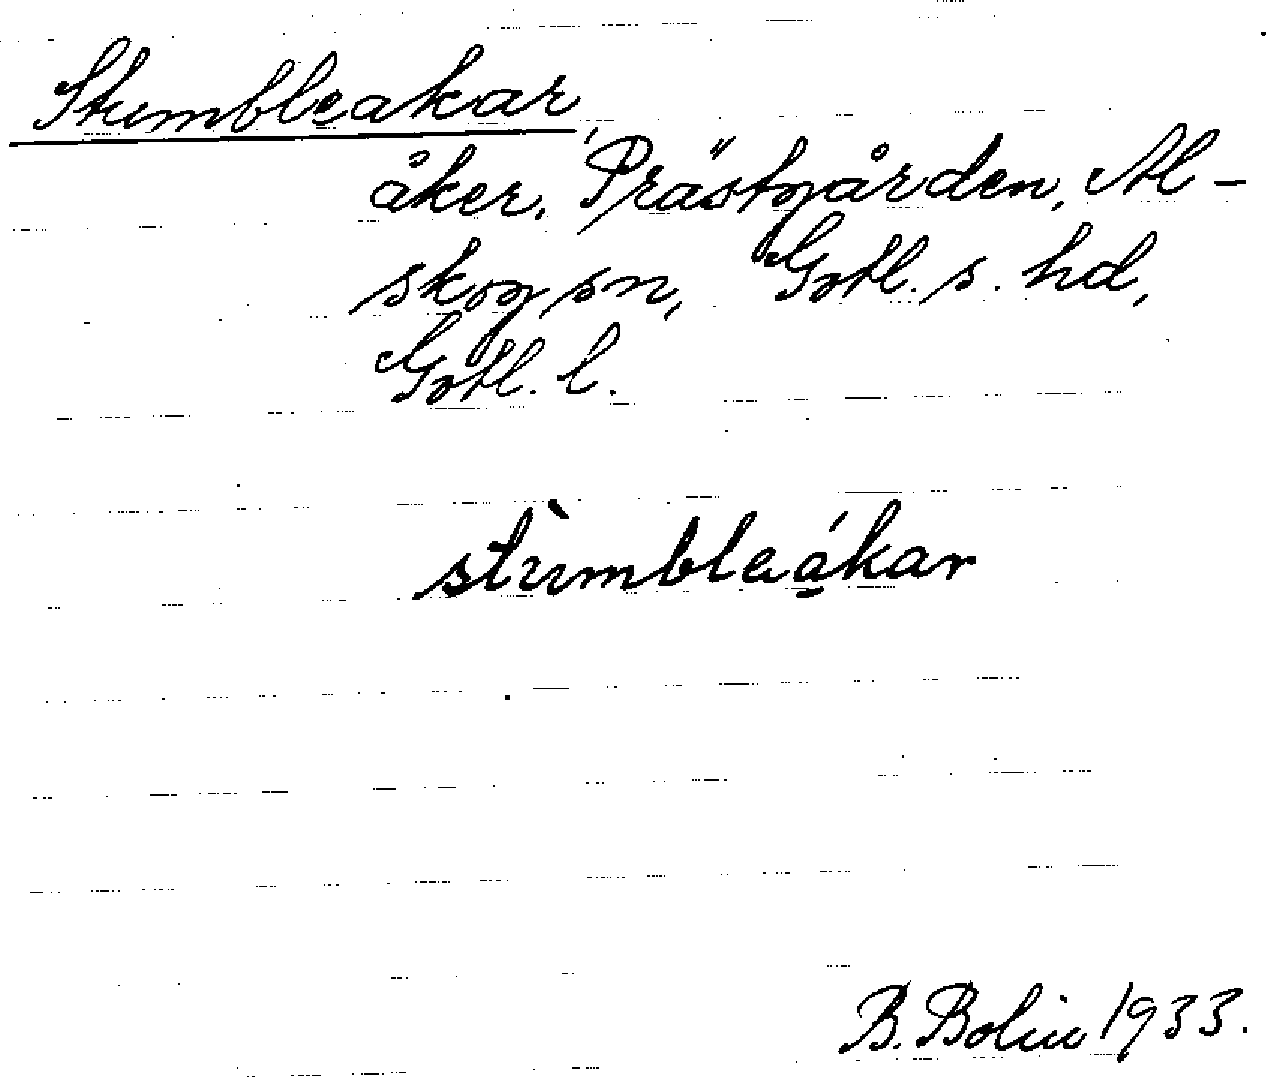 Stumbleakar,
åker, Prästgården, Al-
skog sn, Gotl. s. hd,
Gotl. l.
stùmbleákar
B. Bolin 1933.